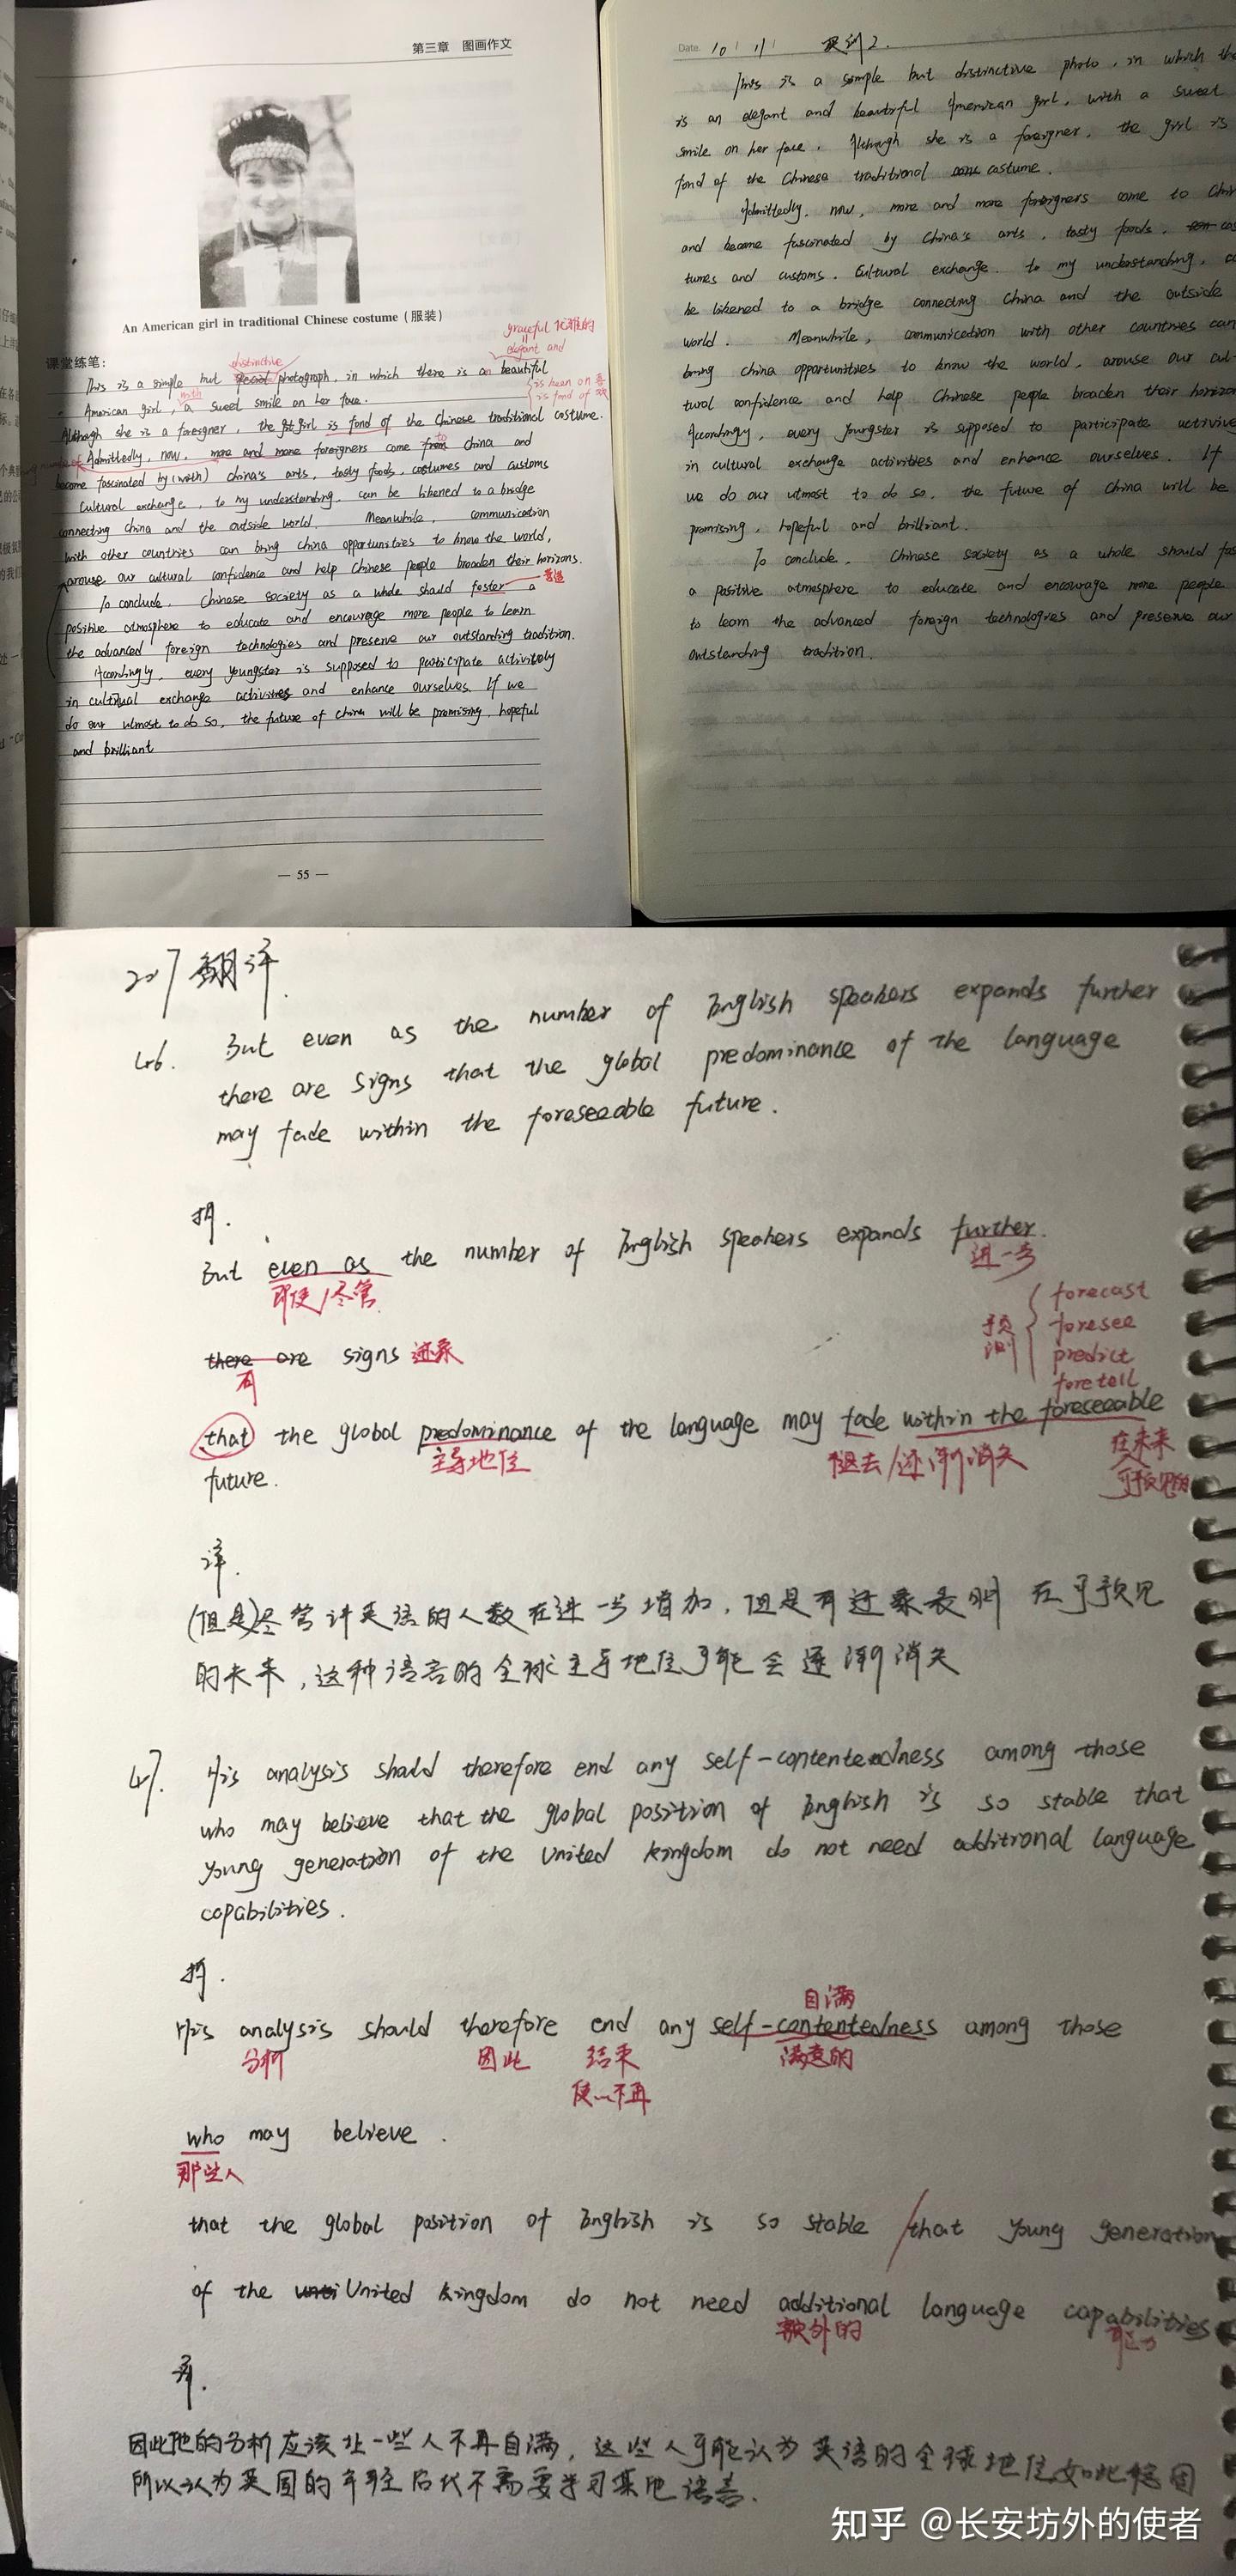 第三章 图画作文
An American girl in traditional Chinese costume (服装)
graceful 优雅的
elegant and
课堂练笔:
distinctive
This is a simple but special photograph, in which there is an beautiful
with
American girl, a sweet smile on her face.
is keen on 喜
is fond of 欢
Although she is a foreigner, the girl is fond of the Chinese traditional costume.
Admittedly, now, more and more foreigners come from China and
to
become fascinated by (with) China's arts, tasty foods, costumes and customs
Cultural exchange, to my understanding, can be likened to a bridge
connecting China and the outside world. Meanwhile, communication
with other countries can bring China opportunities to know the world,
arouse our cultural confidence and help Chinese people broaden their horizons.
To conclude, Chinese society as a whole should foster a
营造
positive atmosphere to educate and encourage more people to learn
the advanced foreign technologies and preserve our outstanding tradition.
Accordingly, every youngster is supposed to participate activitely
in cultural exchange activities and enhance ourselves. If we
do our utmost to do so, the future of China will be promising, hopeful
and brilliant
— 55 —
Date. 10 11
This is a simple but distinctive photo, in which the
is an elegant and beautiful American girl, with a sweet
smile on her face. Although she is a foreigner, the girl is
fond of the Chinese traditional costume.
Admittedly, now, more and more foreigners come to Chin
and become fascinated by China's arts, tasty foods, cos
tumes and customs. Cultural exchange, to my understanding, ca
be likened to a bridge connecting China and the outside
world. Meanwhile, communication with other countries can
bring China opportunities to know the world, arouse our cul-
tural confidence and help Chinese people broaden their horizon
Accordingly, every youngster is supposed to participate activive
in cultural exchange activities and enhance ourselves. If
we do our utmost to do so, the future of China will be
promising, hopeful and brilliant.
To conclude, Chinese society as a whole should fos
a positive atmosphere to educate and encourage more people
to learn the advanced foreign technologies and preserve our
outstanding tradition.
2017 翻译.
46. But even as the number of English speakers expands further
there are signs that the global predominance of the language
may fade within the foreseeable future.
拆.
But even as the number of English speakers expands further.
即使/尽管
进一步
there are signs 迹象
有
预测
forecast
foresee
predict
foretell
that the global predominance of the language may fade within the foreseeable
主导地位
褪去/逐渐消失
在未来
可预见的
future.
译.
(但是)尽管讲英语的人数在进一步增加,但是有迹象表明 在可预见
的未来,这种语言的全球主导地位可能会逐渐消失
47. His analysis should therefore end any self-contentedness among those
who may believe that the global position of English is so stable that
young generation of the United Kingdom do not need additional language
capabilities.
拆.
自满
His analysis should therefore end any self-contentedness among those
分析 因此 结束 满意的
使…不再
who may believe.
那些人
that the global position of English is so stable / that young generation
of the United Kingdom do not need additional language capabilities
额外的 能力
译.
因此他的分析应该让一些人不再自满,这些人可能认为英语的全球地位如此稳固
所以认为英国的年轻后代不需要学习其他语言.
知乎 @长安坊外的使者